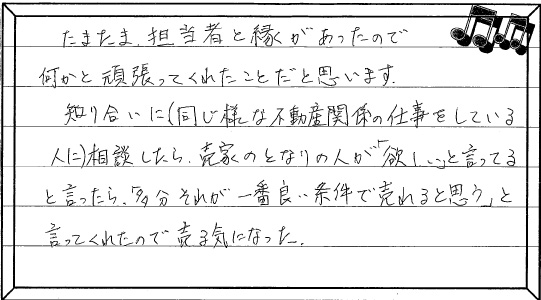 たまたま、担当者と縁があったので
何かと頑張ってくれたことだと思います。
知り合いに(同じ様な不動産関係の仕事をしている
人に)相談したら、売家のとなりの人が「欲しい」と言ってる
と言ったら、「多分それが一番良い条件で売れると思う」と
言ってくれたので売る気になった。